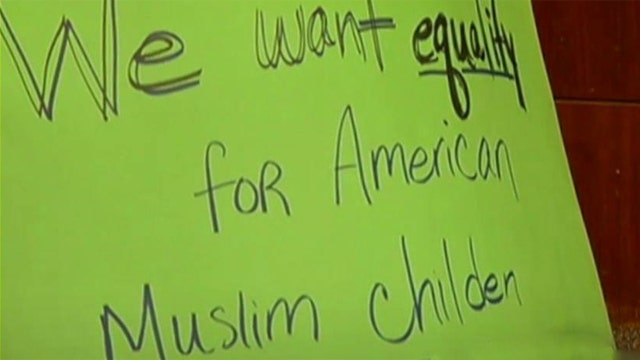 We want equality
for American
Muslim childen